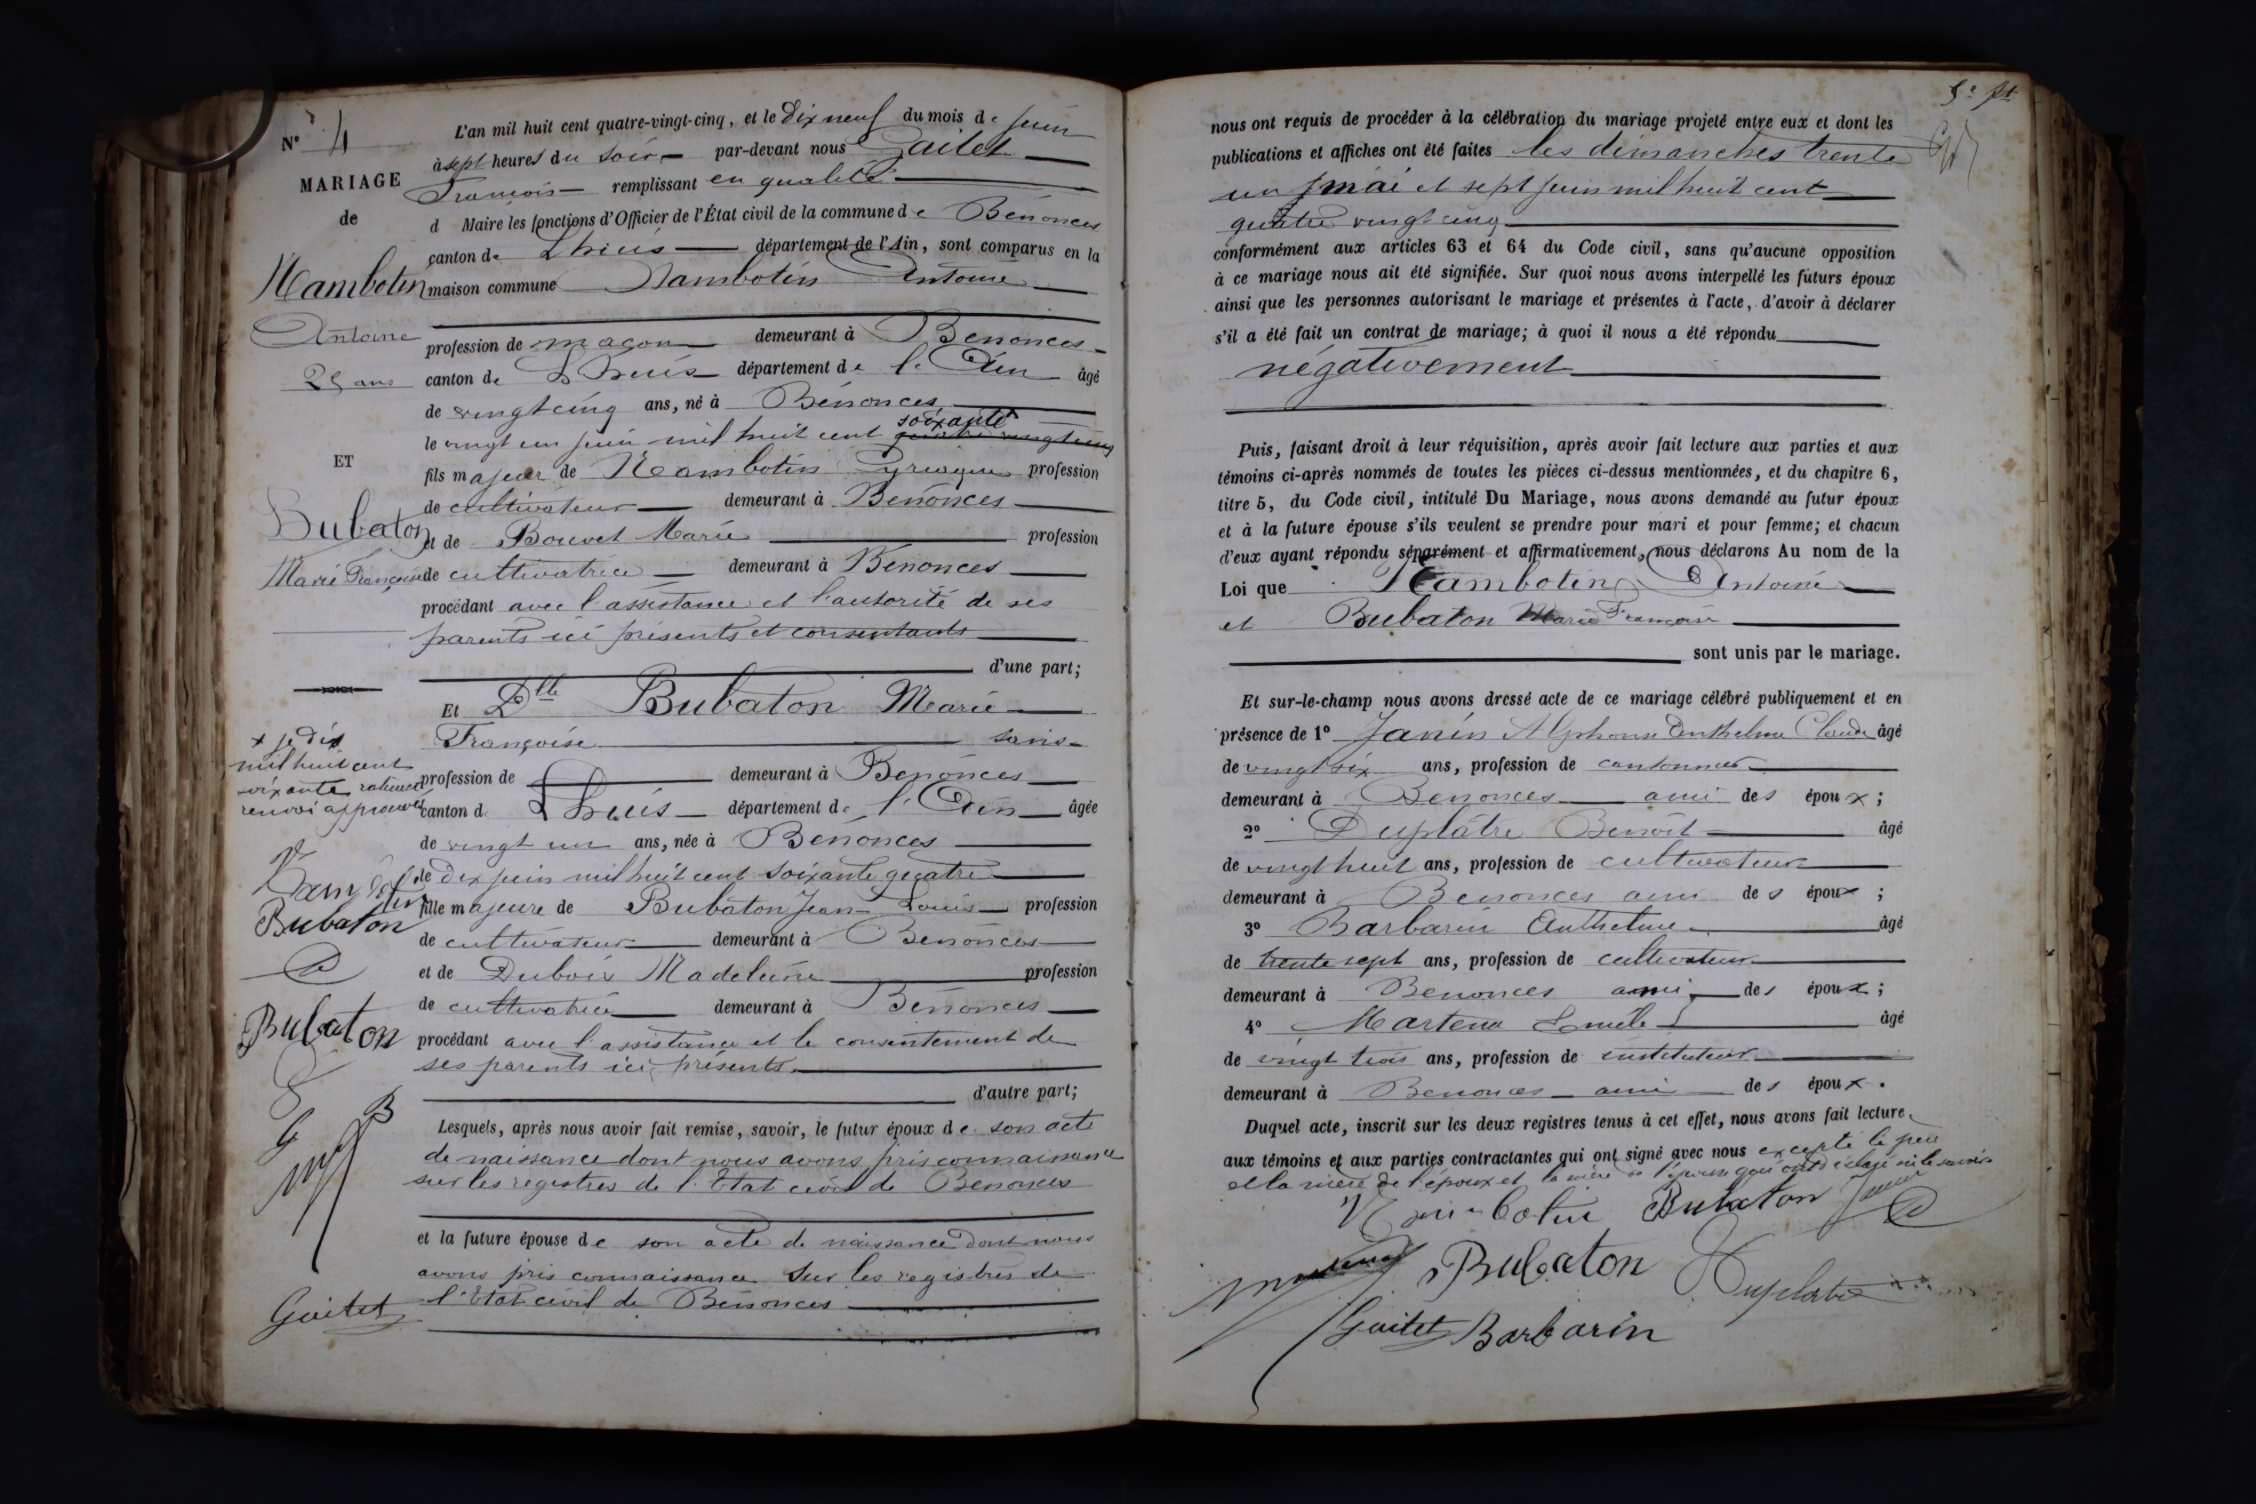 N° 4
MARIAGE
de
Nambotin
Antoine
25 ans
ET
Bubaton
Marie Françoise
x je dis
mil huit cent
soixante rature
renvoi approuvés
Bubaton
Bubaton
G B
Guitet
L'an mil huit cent quatre-vingt-cinq, et le dix neuf du mois de juin
à sept heures du soir par-devant nous Gaitet
François remplissant en qualité
d Maire les fonctions d'Officier de l'État civil de la commune de Bénonces
canton de Lhuis département de l'Ain, sont comparus en la
maison commune Nambotin Antoine
profession de maçon demeurant à Benonces
canton de Lhuis département de l'Ain âgé
de vingt cinq ans, né à Bénonces
soixante
le vingt un juin mil huit cent quatre vingt cinq
fils majeur de Nambotin profession
de cultivateur demeurant à Bénonces
et de Bouvet Marie profession
de cultivatrice demeurant à Bénonces
procédant avec l'assistance et l'autorité de ses
parents ici présents et consentants
d'une part;
Et Dlle Bubaton Marie
Françoise sans
profession de demeurant à Benonces
canton d Lhuis département de l'Ain âgée
de vingt un ans, née à Bénonces
le dix juin mil huit cent soixante quatre
fille majeure de Bubaton Jean Louis profession
de cultivateur demeurant à Benonces
et de Dubois Madeleine profession
de cultivatrice demeurant à Bénonces
procédant avec l'assistance et le consentement de
ses parents ici présents
d'autre part;
Lesquels, après nous avoir fait remise, savoir, le futur époux de son acte
de naissance dont nous avons pris connaissance
sur les registres de l'Etat civil de Benonces
et la future épouse de son acte de naissance dont nous
avons pris connaissance sur les registres de
l'Etat civil de Bénonces
5e ft
nous ont requis de procéder à la célébration du mariage projeté entre eux et dont les
publications et affiches ont été faites les dimanches trente
un mai et sept juin mil huit cent
quatre vingt cinq
conformément aux articles 63 et 64 du Code civil, sans qu'aucune opposition
à ce mariage nous ait été signifiée. Sur quoi nous avons interpellé les futurs époux
ainsi que les personnes autorisant le mariage et présentes à l'acte, d'avoir à déclarer
s'il a été fait un contrat de mariage; à quoi il nous a été répondu
négativement
Puis, faisant droit à leur réquisition, après avoir fait lecture aux parties et aux
témoins ci-après nommés de toutes les pièces ci-dessus mentionnées, et du chapitre 6,
titre 5, du Code civil, intitulé Du Mariage, nous avons demandé au futur époux
et à la future épouse s'ils veulent se prendre pour mari et pour femme; et chacun
d'eux ayant répondu séparément et affirmativement, nous déclarons Au nom de la
Loi que Nambotin Antoine
et Bubaton Marie Françoise
sont unis par le mariage.
Et sur-le-champ nous avons dressé acte de ce mariage célébré publiquement et en
présence de 1° Janin Alphonse Anthelme Claude âgé
de vingt six ans, profession de cantonnier
demeurant à Benonces ami des époux;
2° Duplâtre Benoît âgé
de vingt huit ans, profession de cultivateur
demeurant à Benonces ami des époux;
3° Barbarin Anthelme âgé
de trente sept ans, profession de cultivateur
demeurant à Benonces ami des époux;
4° Martena Emile âgé
de vingt trois ans, profession de instituteur
demeurant à Benonces ami des époux.
Duquel acte, inscrit sur les deux registres tenus à cet effet, nous avons fait lecture
aux témoins et aux parties contractantes qui ont signé avec nous excepté le père
et la mère de l'époux et la mère de l'épouse qui ont déclaré ne le savoir
Nambotin Bubaton Janin
Bubaton Duplatre
Guitet Barbarin